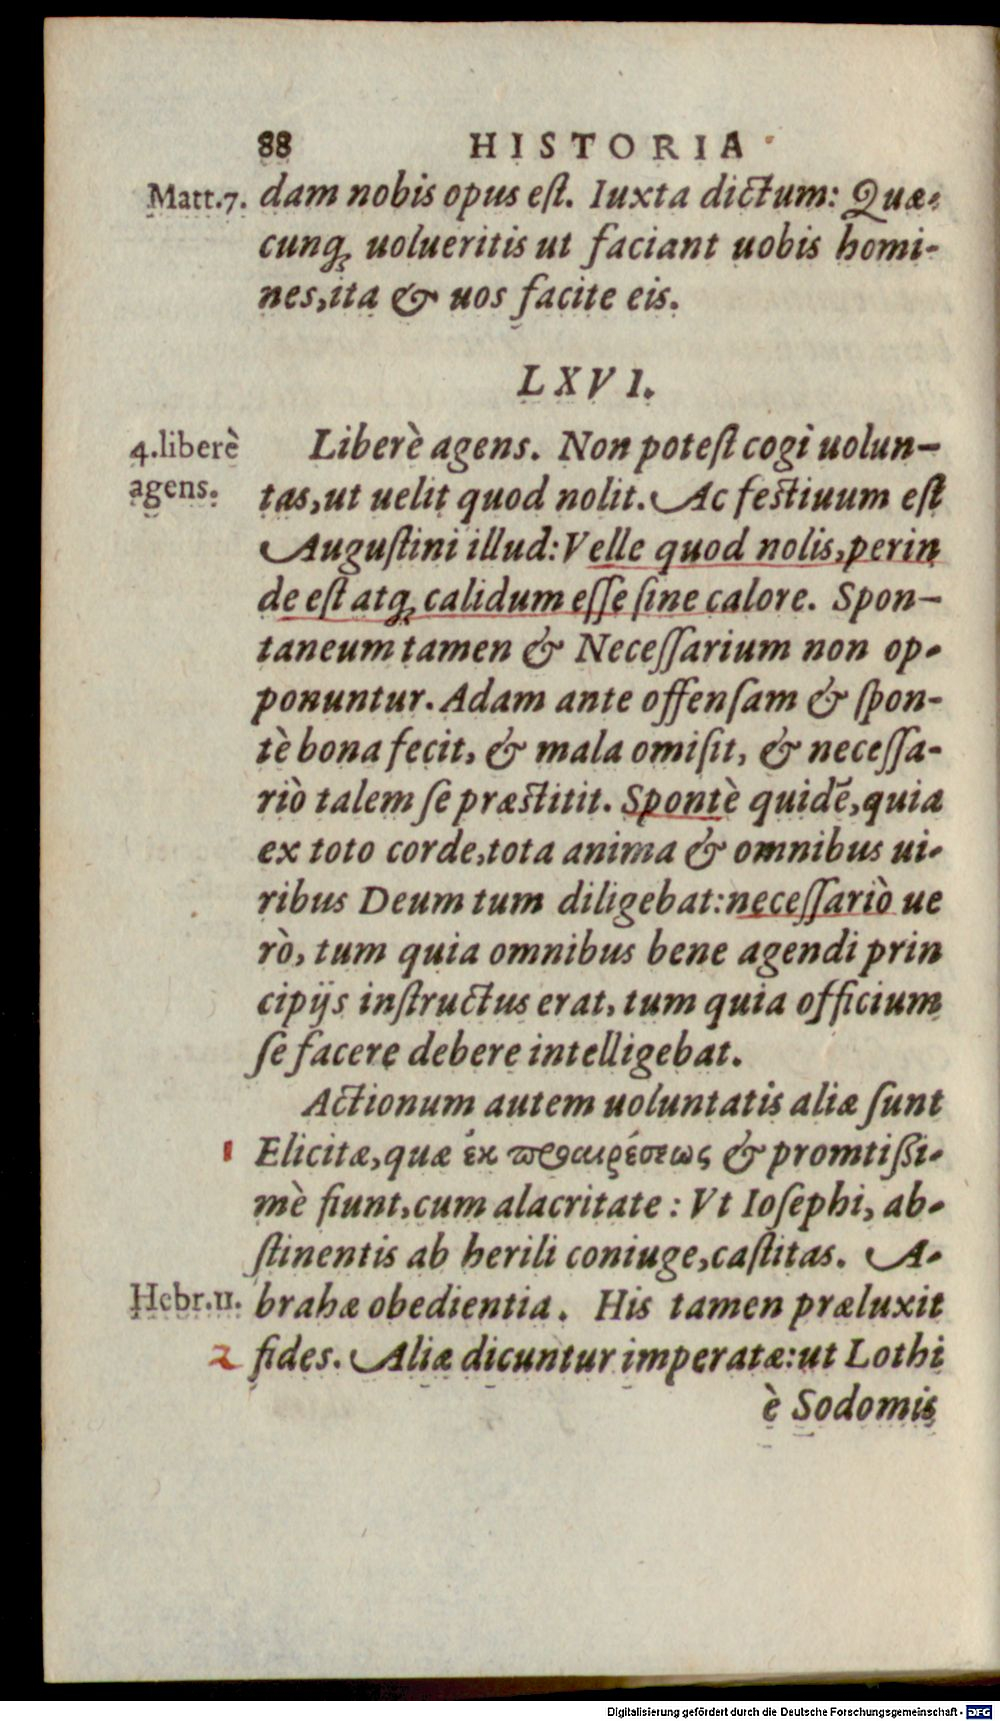 88 HISTORIA
Matt.7. dam nobis opus eſt. Iuxta dictum: Quæ-
cunq; uolueritis ut faciant uobis homi-
nes, ita & uos facite eis.
LXVI.
4. liberè agens.
Liberè agens. Non poteſt cogi uolun-
tas, ut uelit quod nolit. Ac feſtiuum eſt
Auguſtini illud: Velle quod nolis, perin
de eſt atq; calidum eſſe ſine calore. Spon-
taneum tamen & Neceſſarium non op-
ponuntur. Adam ante offenſam & ſpon-
tè bona fecit, & mala omiſit, & neceſſa-
riò talem ſe præſtitit. Spontè quidē, quia
ex toto corde, tota anima & omnibus ui-
ribus Deum tum diligebat: neceſſariò ue
rò, tum quia omnibus bene agendi prin
cipijs inſtructus erat, tum quia officium
ſe facere debere intelligebat.
Actionum autem uoluntatis aliæ ſunt
1 Elicitæ, quæ ἐκ προαιρέσεως & promtiſsi-
mè fiunt, cum alacritate: Vt Ioſephi, ab-
ſtinentis ab herili coniuge, caſtitas. A-
Hebr.11. brahæ obedientia. His tamen præluxit
2 fides. Aliæ dicuntur imperatæ: ut Lothi
è Sodomis
Digitalisierung gefördert durch die Deutsche Forschungsgemeinschaft - DFG